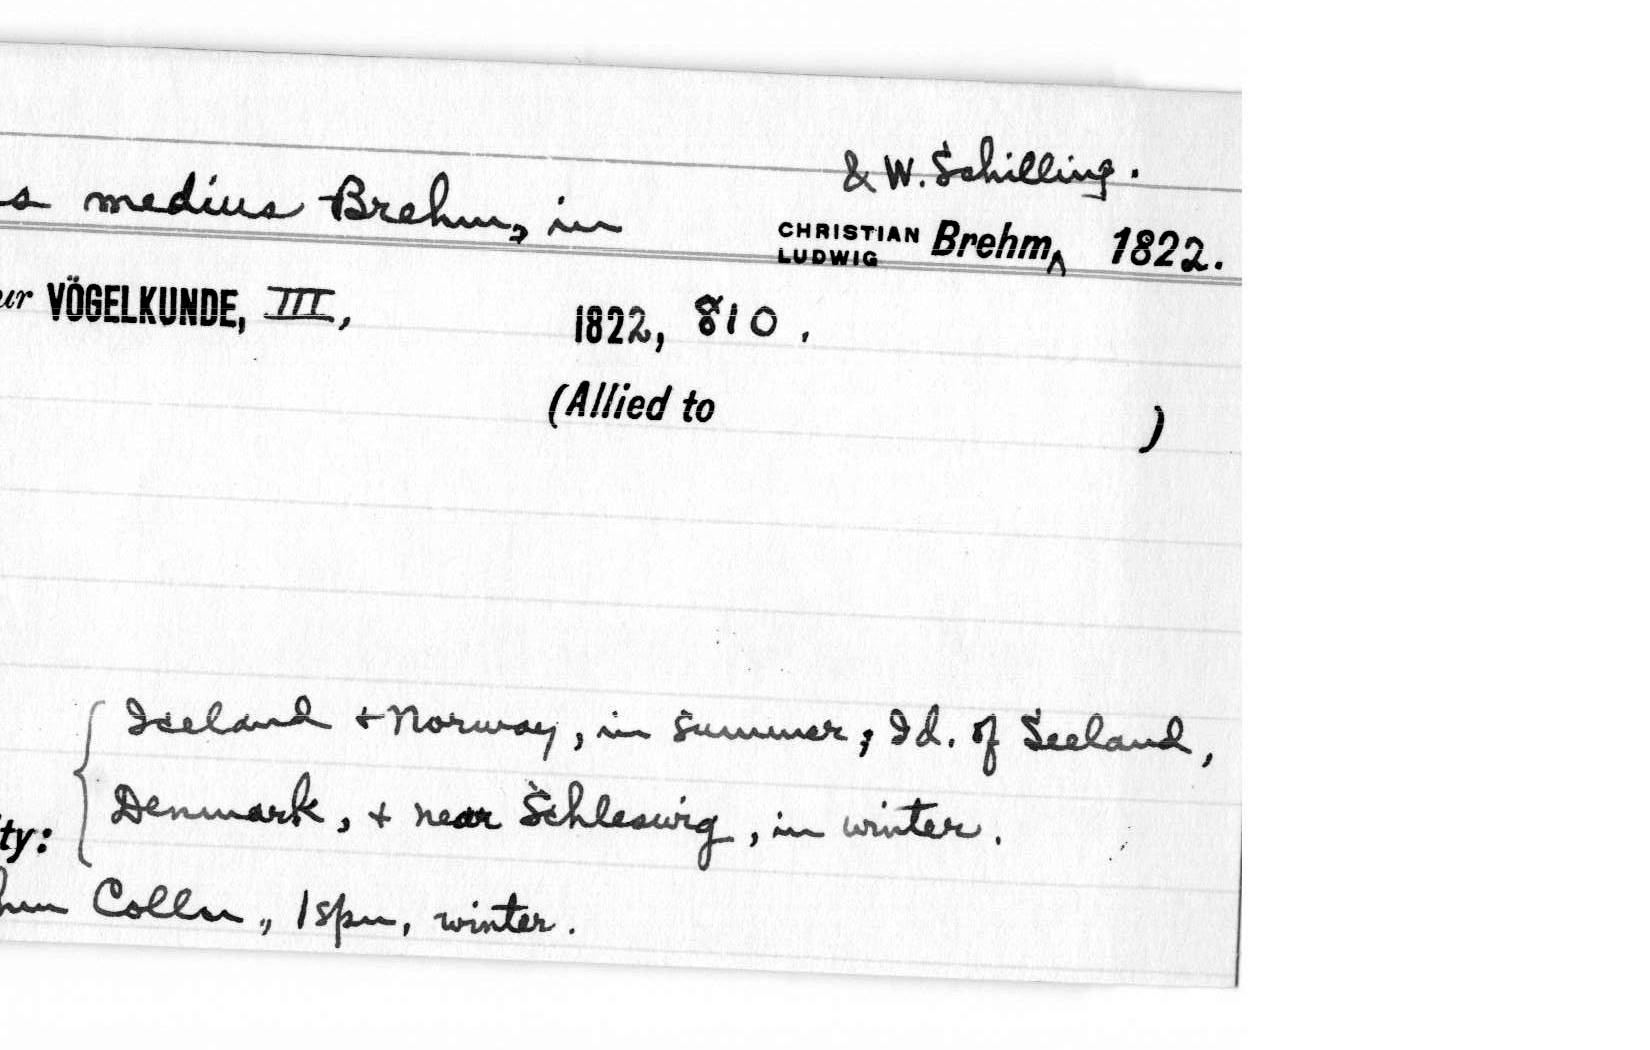 & W. Schilling.
s medius Brehm, in CHRISTIAN LUDWIG Brehm^ 1822.
ur VÖGELKUNDE, III, 1822, 810.
(Allied to )
Iceland + Norway, in summer; Id. of Seeland,
ty: Denmark, + near Schleswig, in winter.
hm Colln., 1 spn, winter.